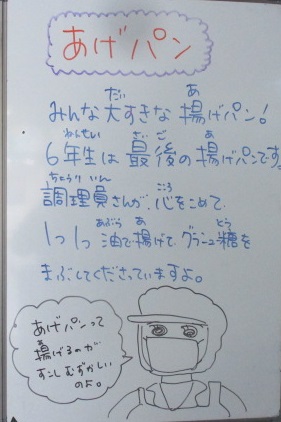 あげパン
みんな大すきな揚げパン!
6年生は最後の揚げパンです。
調理員さんが、心をこめて、
1つ1つ油で揚げて、グラニュ糖を
まぶしてくださっていますよ。
あげパンって
揚げるのが
すこしむずかしい
のよ。